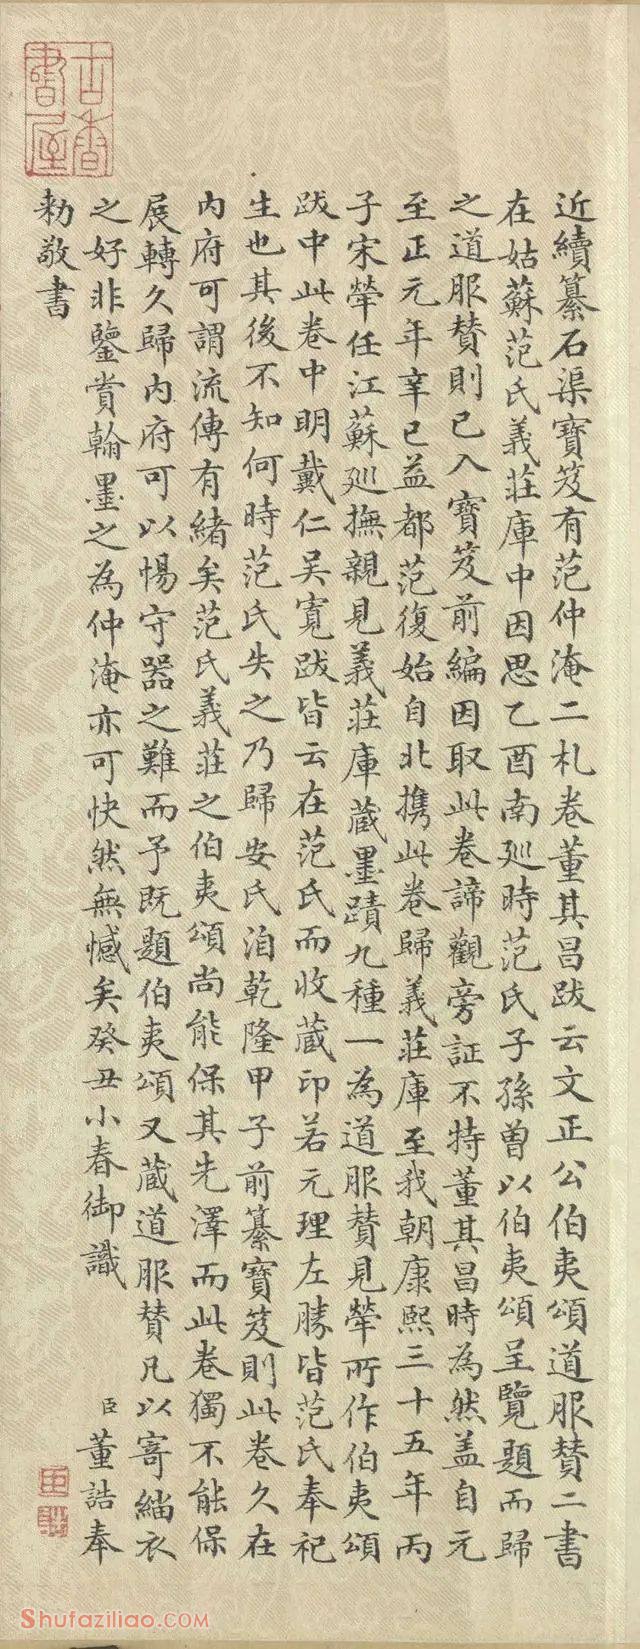 近續纂石渠寶笈有范仲淹二札卷董其昌跋云文正公伯夷頌道服賛二書
在姑蘇范氏義莊庫中因思乙酉南廵時范氏子孫曾以伯夷頌呈覽題而歸
之道服賛則已入寶笈前編因取此卷諦觀旁証不特董其昌時為然盖自元
至正元年辛巳益都范復始自北携此卷歸義莊庫至我朝康熙三十五年丙
子宋犖任江蘇廵撫親見義莊庫蔵墨蹟九種一為道服賛見犖所作伯夷頌
跋中此卷中明戴仁吴寛跋皆云在范氏而收蔵印若元理左勝皆范氏奉祀
生也其後不知何時范氏失之乃歸安氏洎乾隆甲子前纂寶笈則此卷久在
内府可謂流傳有緒矣范氏義莊之伯夷頌尚能保其先澤而此卷獨不能保
展轉久歸内府可以惕守器之難而予既題伯夷頌又蔵道服賛凡以寄緇衣
之好非鑒賞翰墨之為仲淹亦可快然無憾矣癸丑小春御識
臣董誥奉
勅敬書
古香書屋
Shufaziliao.COM